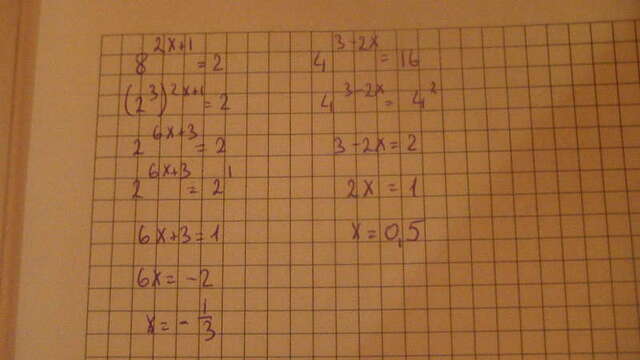 8^{2x+1} = 2
(2^3)^{2x+1} = 2
2^{6x+3} = 2
2^{6x+3} = 2^1
6x+3=1
6x = -2
x = -\frac{1}{3}
4^{3-2x} = 16
4^{3-2x} = 4^2
3-2x=2
2x = 1
x=0,5